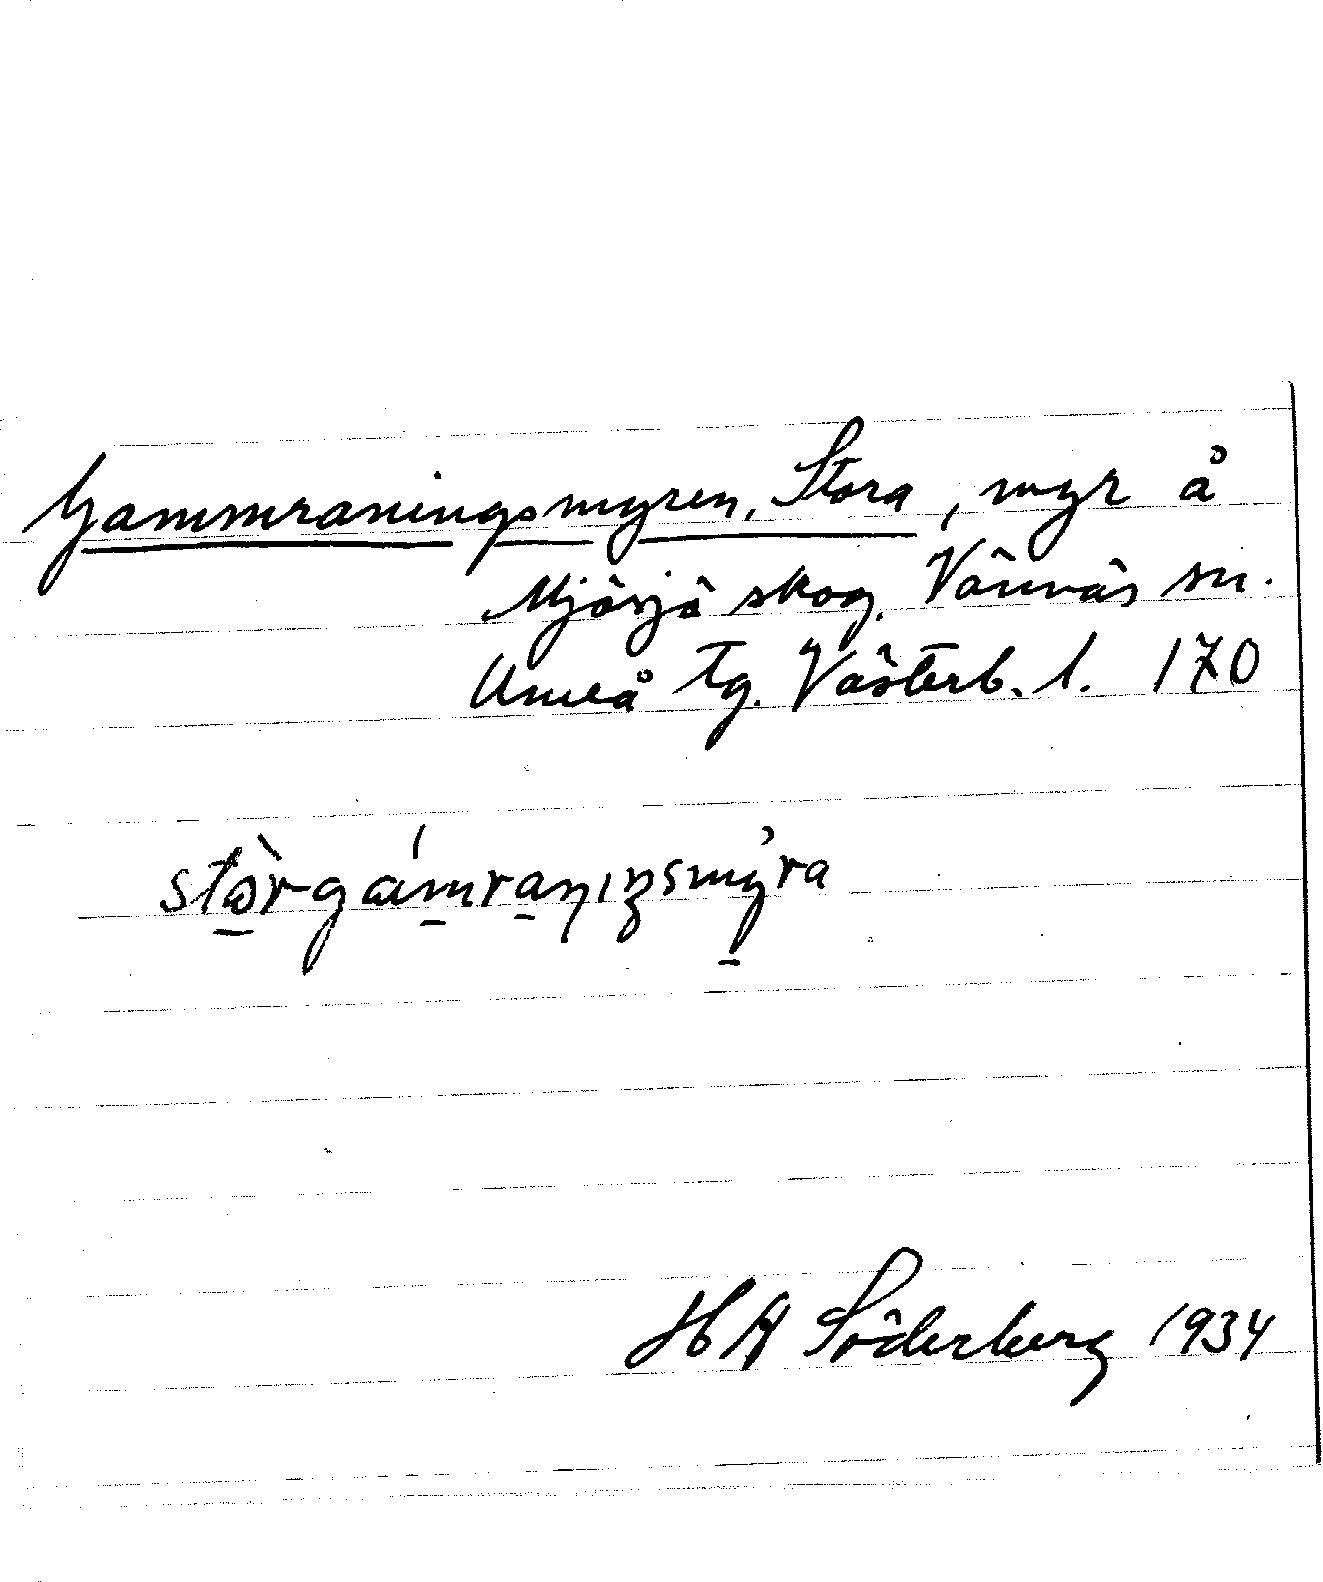 Gammraningsmyren, Stora, myr å
Mjösjö skog. Vännäs sn.
Umeå tg. Västerb. l. 170
stòrgámranıŋsmýra
H A Söderberg 1934